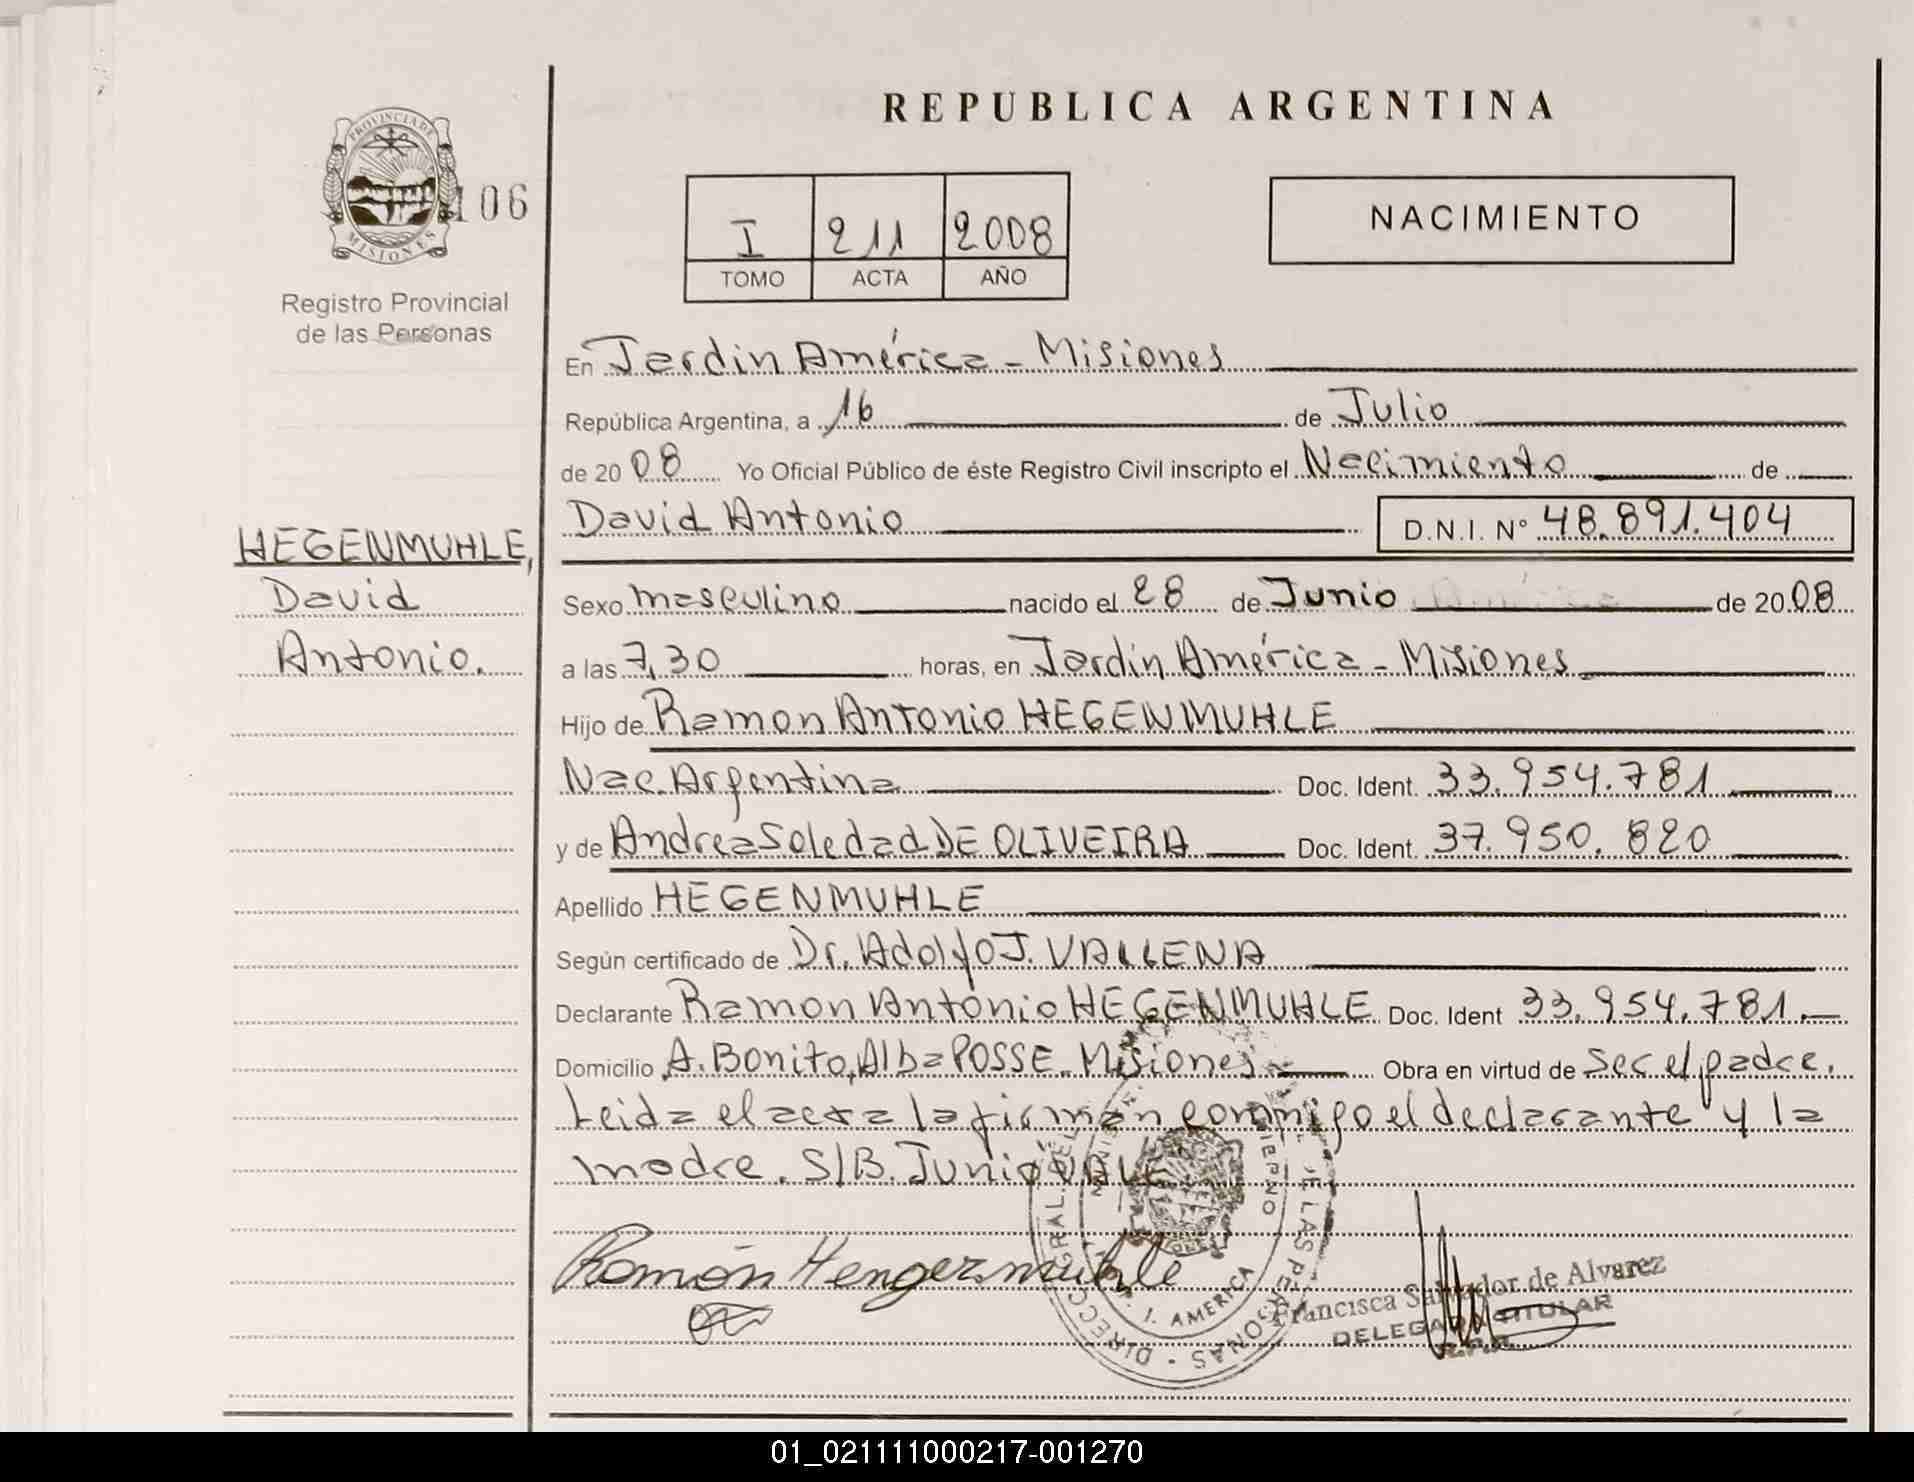 REPUBLICA ARGENTINA
PROVINCIA DE
MISIONES
106
Registro Provincial
de las Personas
I 211 2008
TOMO ACTA AÑO
NACIMIENTO
En Jardin América - Misiones
República Argentina, a 16 de Julio
de 2008 Yo Oficial Público de éste Registro Civil inscripto el Nacimiento de
David Antonio D.N.I. Nº 48.891.404
HEGENMUHLE,
David
Antonio.
Sexo masculino nacido el 28 de Junio de 2008
a las 7,30 horas, en Jardin América - Misiones
Hijo de Ramon Antonio HEGENMUHLE
Nac. Argentina Doc. Ident. 33.954.781
y de Andrea Soledad DE OLIVEIRA Doc. Ident. 37.950.820
Apellido HEGENMUHLE
Según certificado de Dr. Adolfo J. VALLENA
Declarante Ramon Antonio HEGENMUHLE Doc. Ident 33.954.781.
Domicilio A. Bonito, Alba POSSE - Misiones Obra en virtud de ser el padre.
Leida el acta la firman conmigo el declarante y la
madre. S/B. Junio VALE
Ramón Hengermuhle
J. AMERICA
Francisca Salvador de Alvarez
DELEGADA TITULAR
01_021111000217-001270